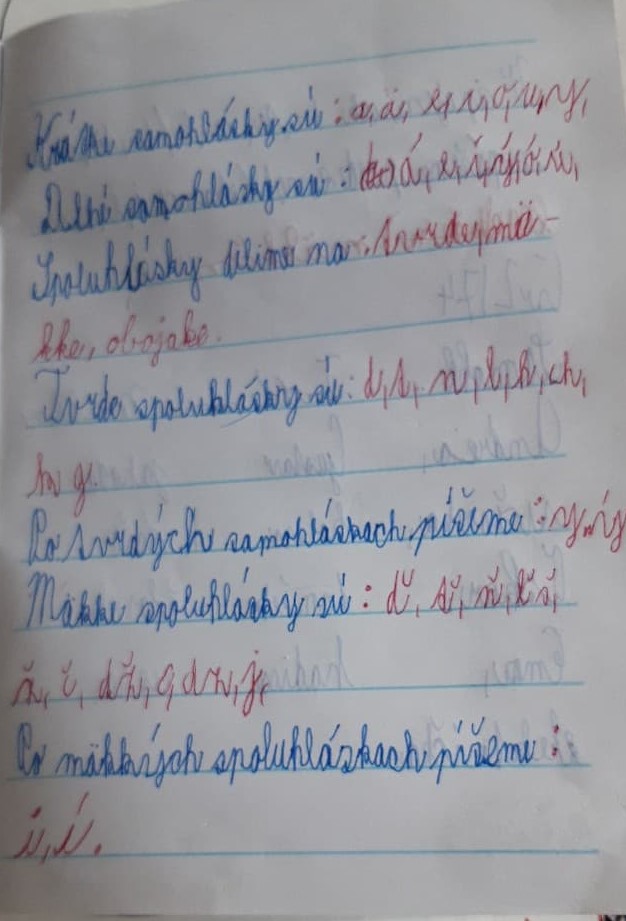 Krátke samohlásky sú : a, ä, e, i, o, u, y,
Dlhé samohlásky sú : á, é, í, ý, ó, ú,
Spoluhlásky delíme na : tvrde, mä-
kke, obojake.
Tvrde spoluhlásky sú : d, t, n, l, k, ch,
h, g.
Po tvrdých samohláskach píšeme : y, ý
Mäkke spoluhlásky sú : ď, ť, ň, ľ, š,
ž, č, dž, c, dz, j,
Po mäkkých spoluhláskach píšeme :
i, í.